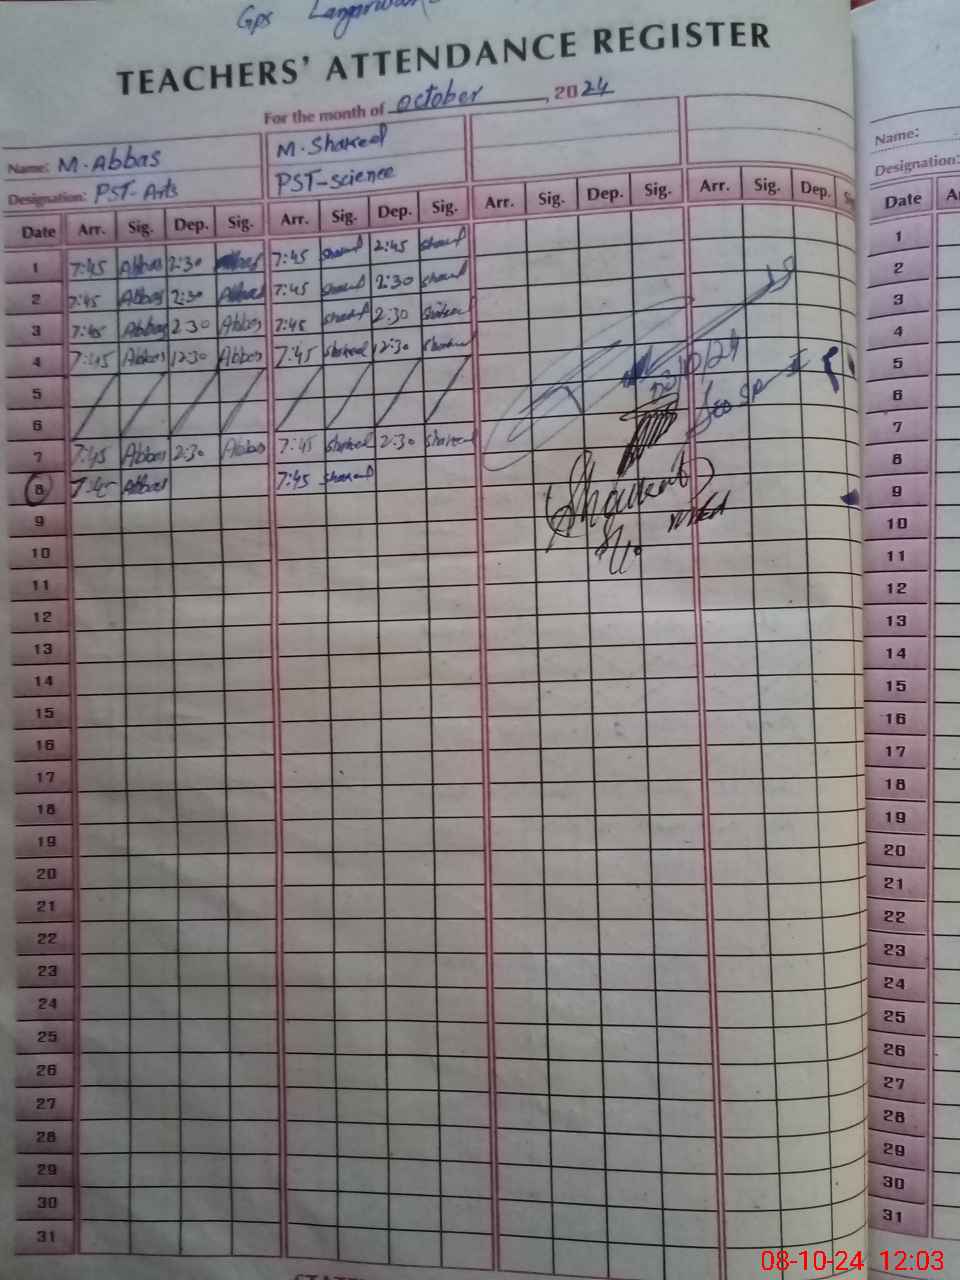 Gps
TEACHERS' ATTENDANCE REGISTER
For the month of October, 2024
Name: M. Abbas M. Shakeel
Designation: PST-Arts PST-science
Date Arr. Sig. Dep. Sig. Arr. Sig. Dep. Sig. Arr. Sig. Dep. Sig. Arr. Sig. Dep.
1 7:45 Abbas 2:30 Abbas 7:45 Shakeel 2:45 Shakeel
2 7:45 Abbas 2:30 Abbas 7:45 Shakeel 2:30 Shakeel
3 7:45 Abbas 2:30 Abbas 7:45 Shakeel 2:30 Shakeel
4 7:45 Abbas 12:30 Abbas 7:45 Shakeel 12:30 Shakeel
5
6
7 7:45 Abbas 2:30 Abbas 7:45 Shakeel 2:30 Shakeel
8 7:45 Abbas 7:45 Shakeel
9
10
11
12
13
14
15
16
17
18
19
20
21
22
23
24
25
26
27
28
29
30
31
Shaukat
8/10
MEA
Name:
Designation:
Date
1
2
3
4
5
6
7
8
9
10
11
12
13
14
15
16
17
18
19
20
21
22
23
24
25
26
27
28
29
30
31
08-10-24 12:03